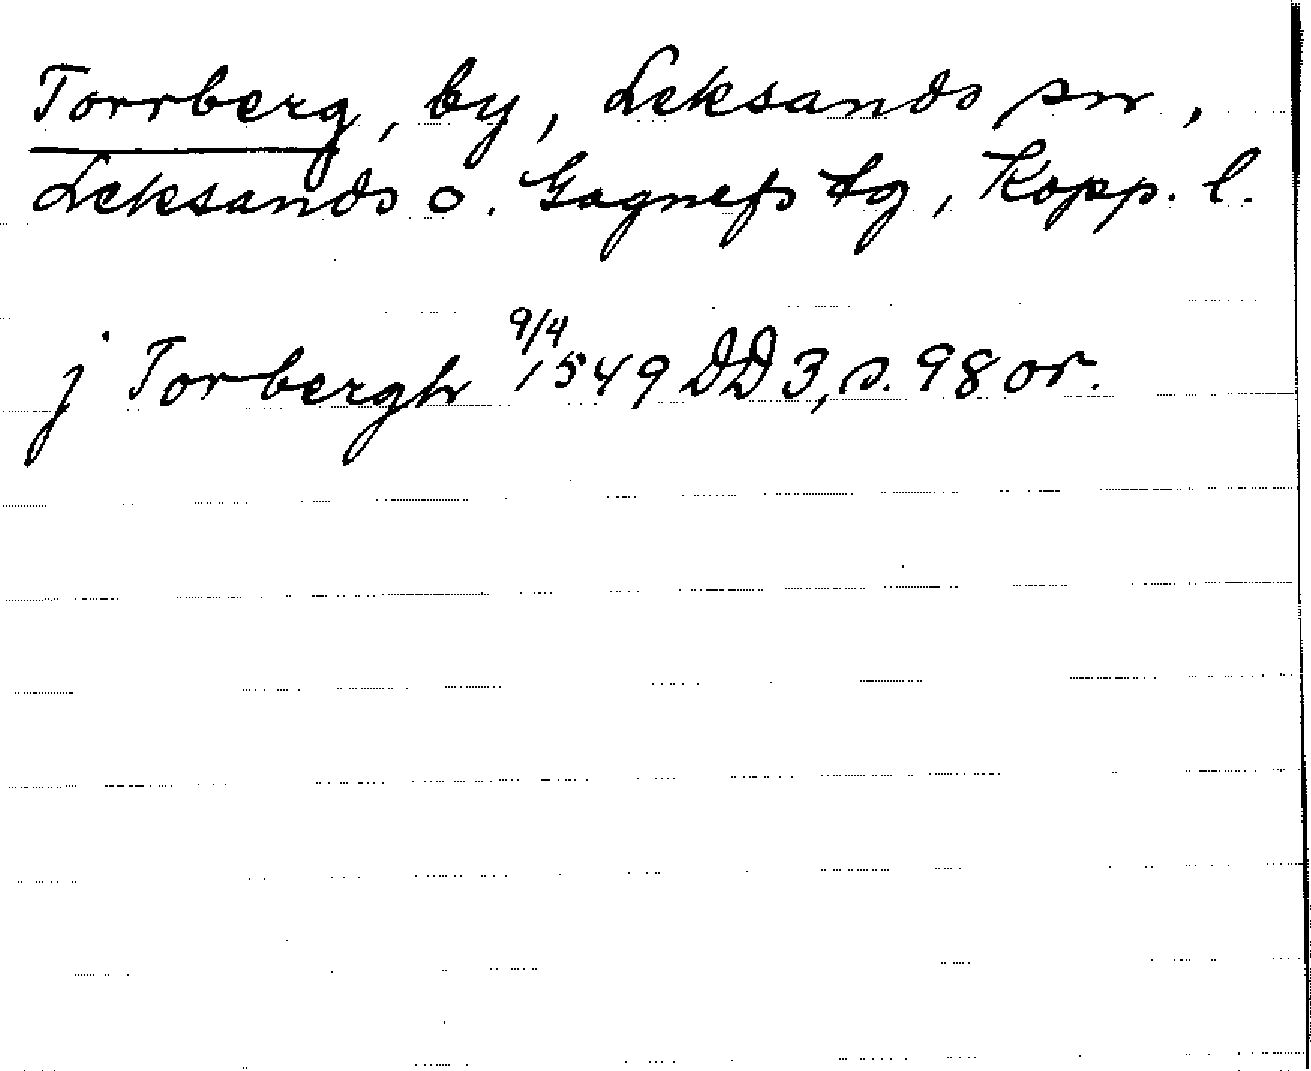 Torrberg, by, Leksands sn,
Leksands o. Gagnefs tg, Kopp. l.
j Torbergh 9/4 1549 DD 3, s. 98 or.